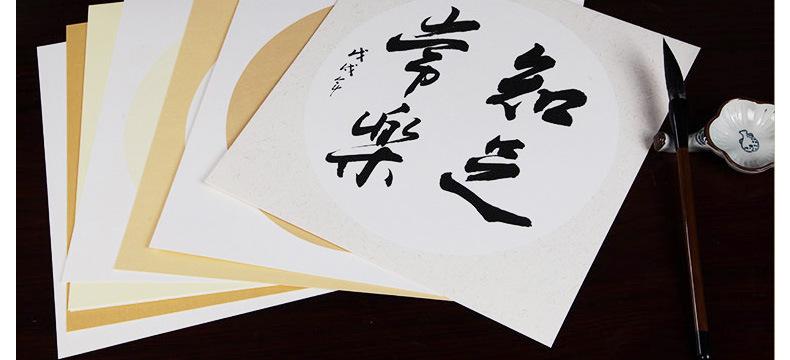 知足
常樂
戊戌年